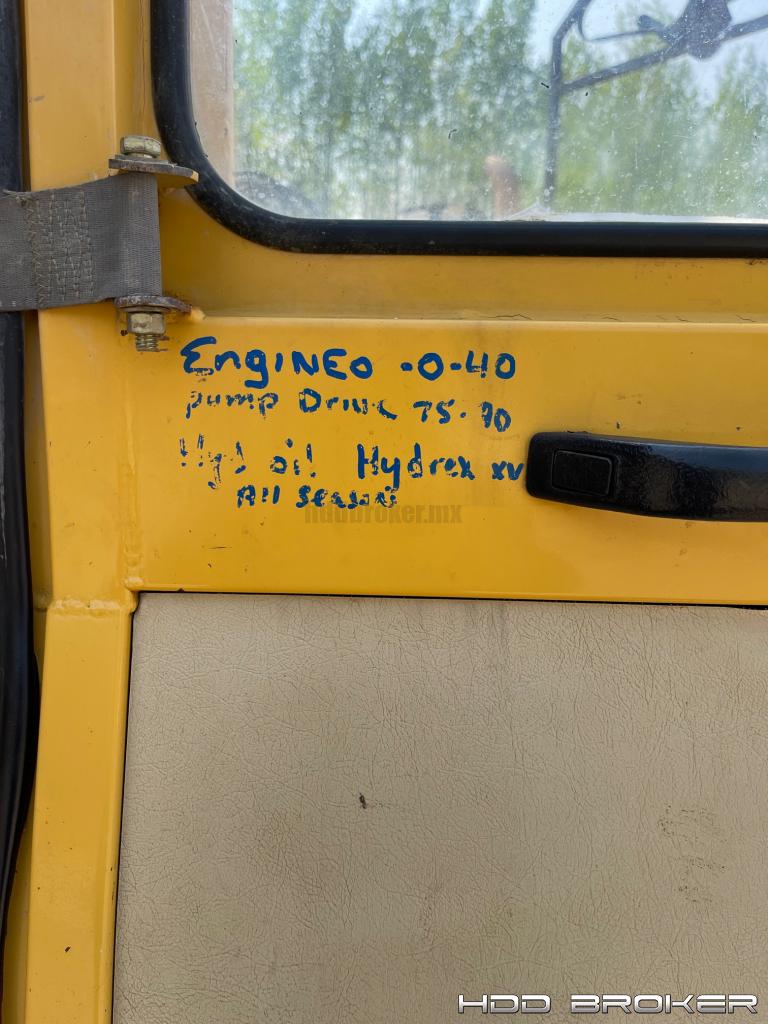 EngINEO -0-40
pump Drive 75-90
Hyd oil Hydrex XV
All season
hddbroker.mx
HDD BROKER